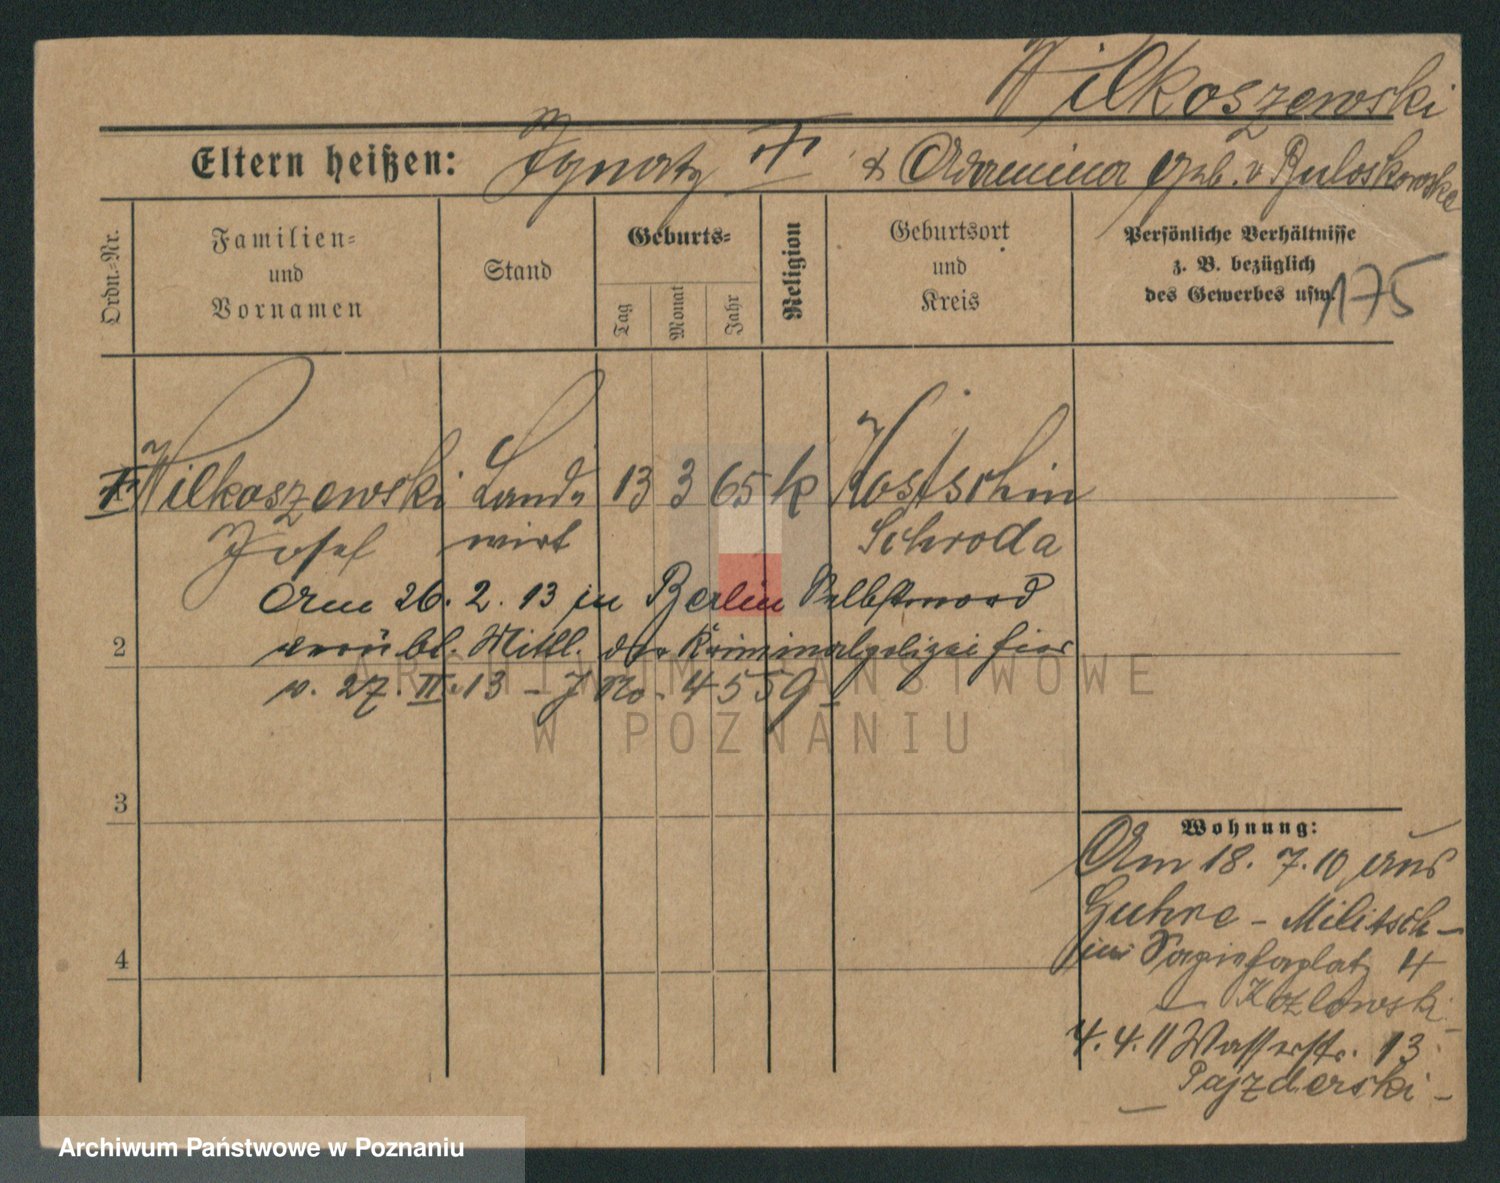 Wilkoszewski
Eltern heißen: Ignatz † & Adamina geb. v
Ordn.-Nr.
Familien=
und
Vornamen
Stand
Geburts=
Tag
Monat
Jahr
Religion
Geburtsort
und
Kreis
Persönliche Verhältnisse
z. B. bezüglich
des Gewerbes usw.
175
Wilkoszewski Land= 13 3 65 k Kostschin
Josef wirt Schroda
Am 26. 2. 13 in Berlin Selbstmord
verübt. Mittl. der Kriminalpolizei hier
v. 27. II. 13 - J No. 4559
2
3
4
Wohnung:
Am 18. 7. 10 aus
Guhre - Militsch -
Sapiehaplatz 4
- Kozlowski -
4. 4. 11 Wasserstr. 13
- Pajzderski -
ARCHIWUM PAŃSTWOWE
W POZNANIU
Archiwum Państwowe w Poznaniu